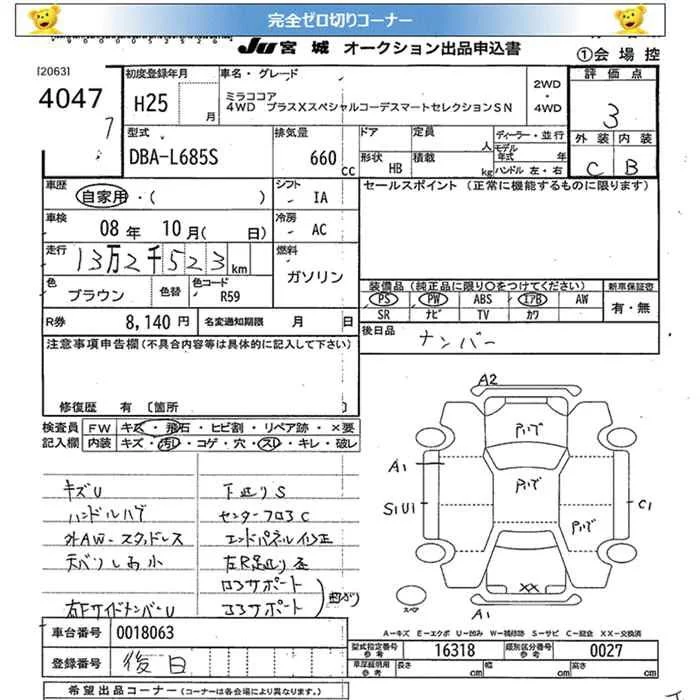 完全ゼロ切りコーナー
JU 宮城 オークション出品申込書
①会場控
[2063]
4047
7
初度登録年月
H25
月
車名・グレード
ミラココア
4WD プラスXスペシャルコーデスマートセレクションSN
2WD
・
4WD
評価点
3
外装 内装
C B
型式
DBA-L685S
排気量
660 cc
ドア
定員
人
形状
HB
積載
kg
ディーラー・並行
モデル年式 年
ハンドル 左・右
車歴
自家用・( )
シフト
IA
セールスポイント (正常に機能するものに限ります)
車検
08 年 10 月( 日)
冷房
AC
走行
13万2千523 km
燃料
ガソリン
色
ブラウン
色替
色コード
R59
装備品(純正品に限り○をつけてください)
新車保証書
PS PW ABS エアB AW
SR ナビ TV カワ
有・無
R券
8,140 円
名変通知期限 月 日
後日品
ナンバー
注意事項申告欄(不具合内容等は具体的に記入して下さい)
修復歴 有 〔箇所 〕
検査員
記入欄
FW キズ・飛石・ヒビ割・リペア跡・×要
内装 キズ・汚レ・コゲ・穴・スレ・キレ・破レ
キズU
下廻りS
ハンドルハゲ
センターフロアC
外AW-スタッドレス
エンドパネル修正
天バリし高小
右FサイドメンバーU
コアサポート
A2
A1
S1U1
C1
A1
XX
スペア
A-キズ E-エクボ U-凹み W-補修跡 S-サビ C-腐食 XX-交換済
車台番号
0018063
型式指定番号
参考
16318
類別区分番号
参考
0027
登録番号
後日
車庫証明用
参考
長さ cm
幅 cm
高さ cm
希望出品コーナー (コーナーは各会場により異なります。)